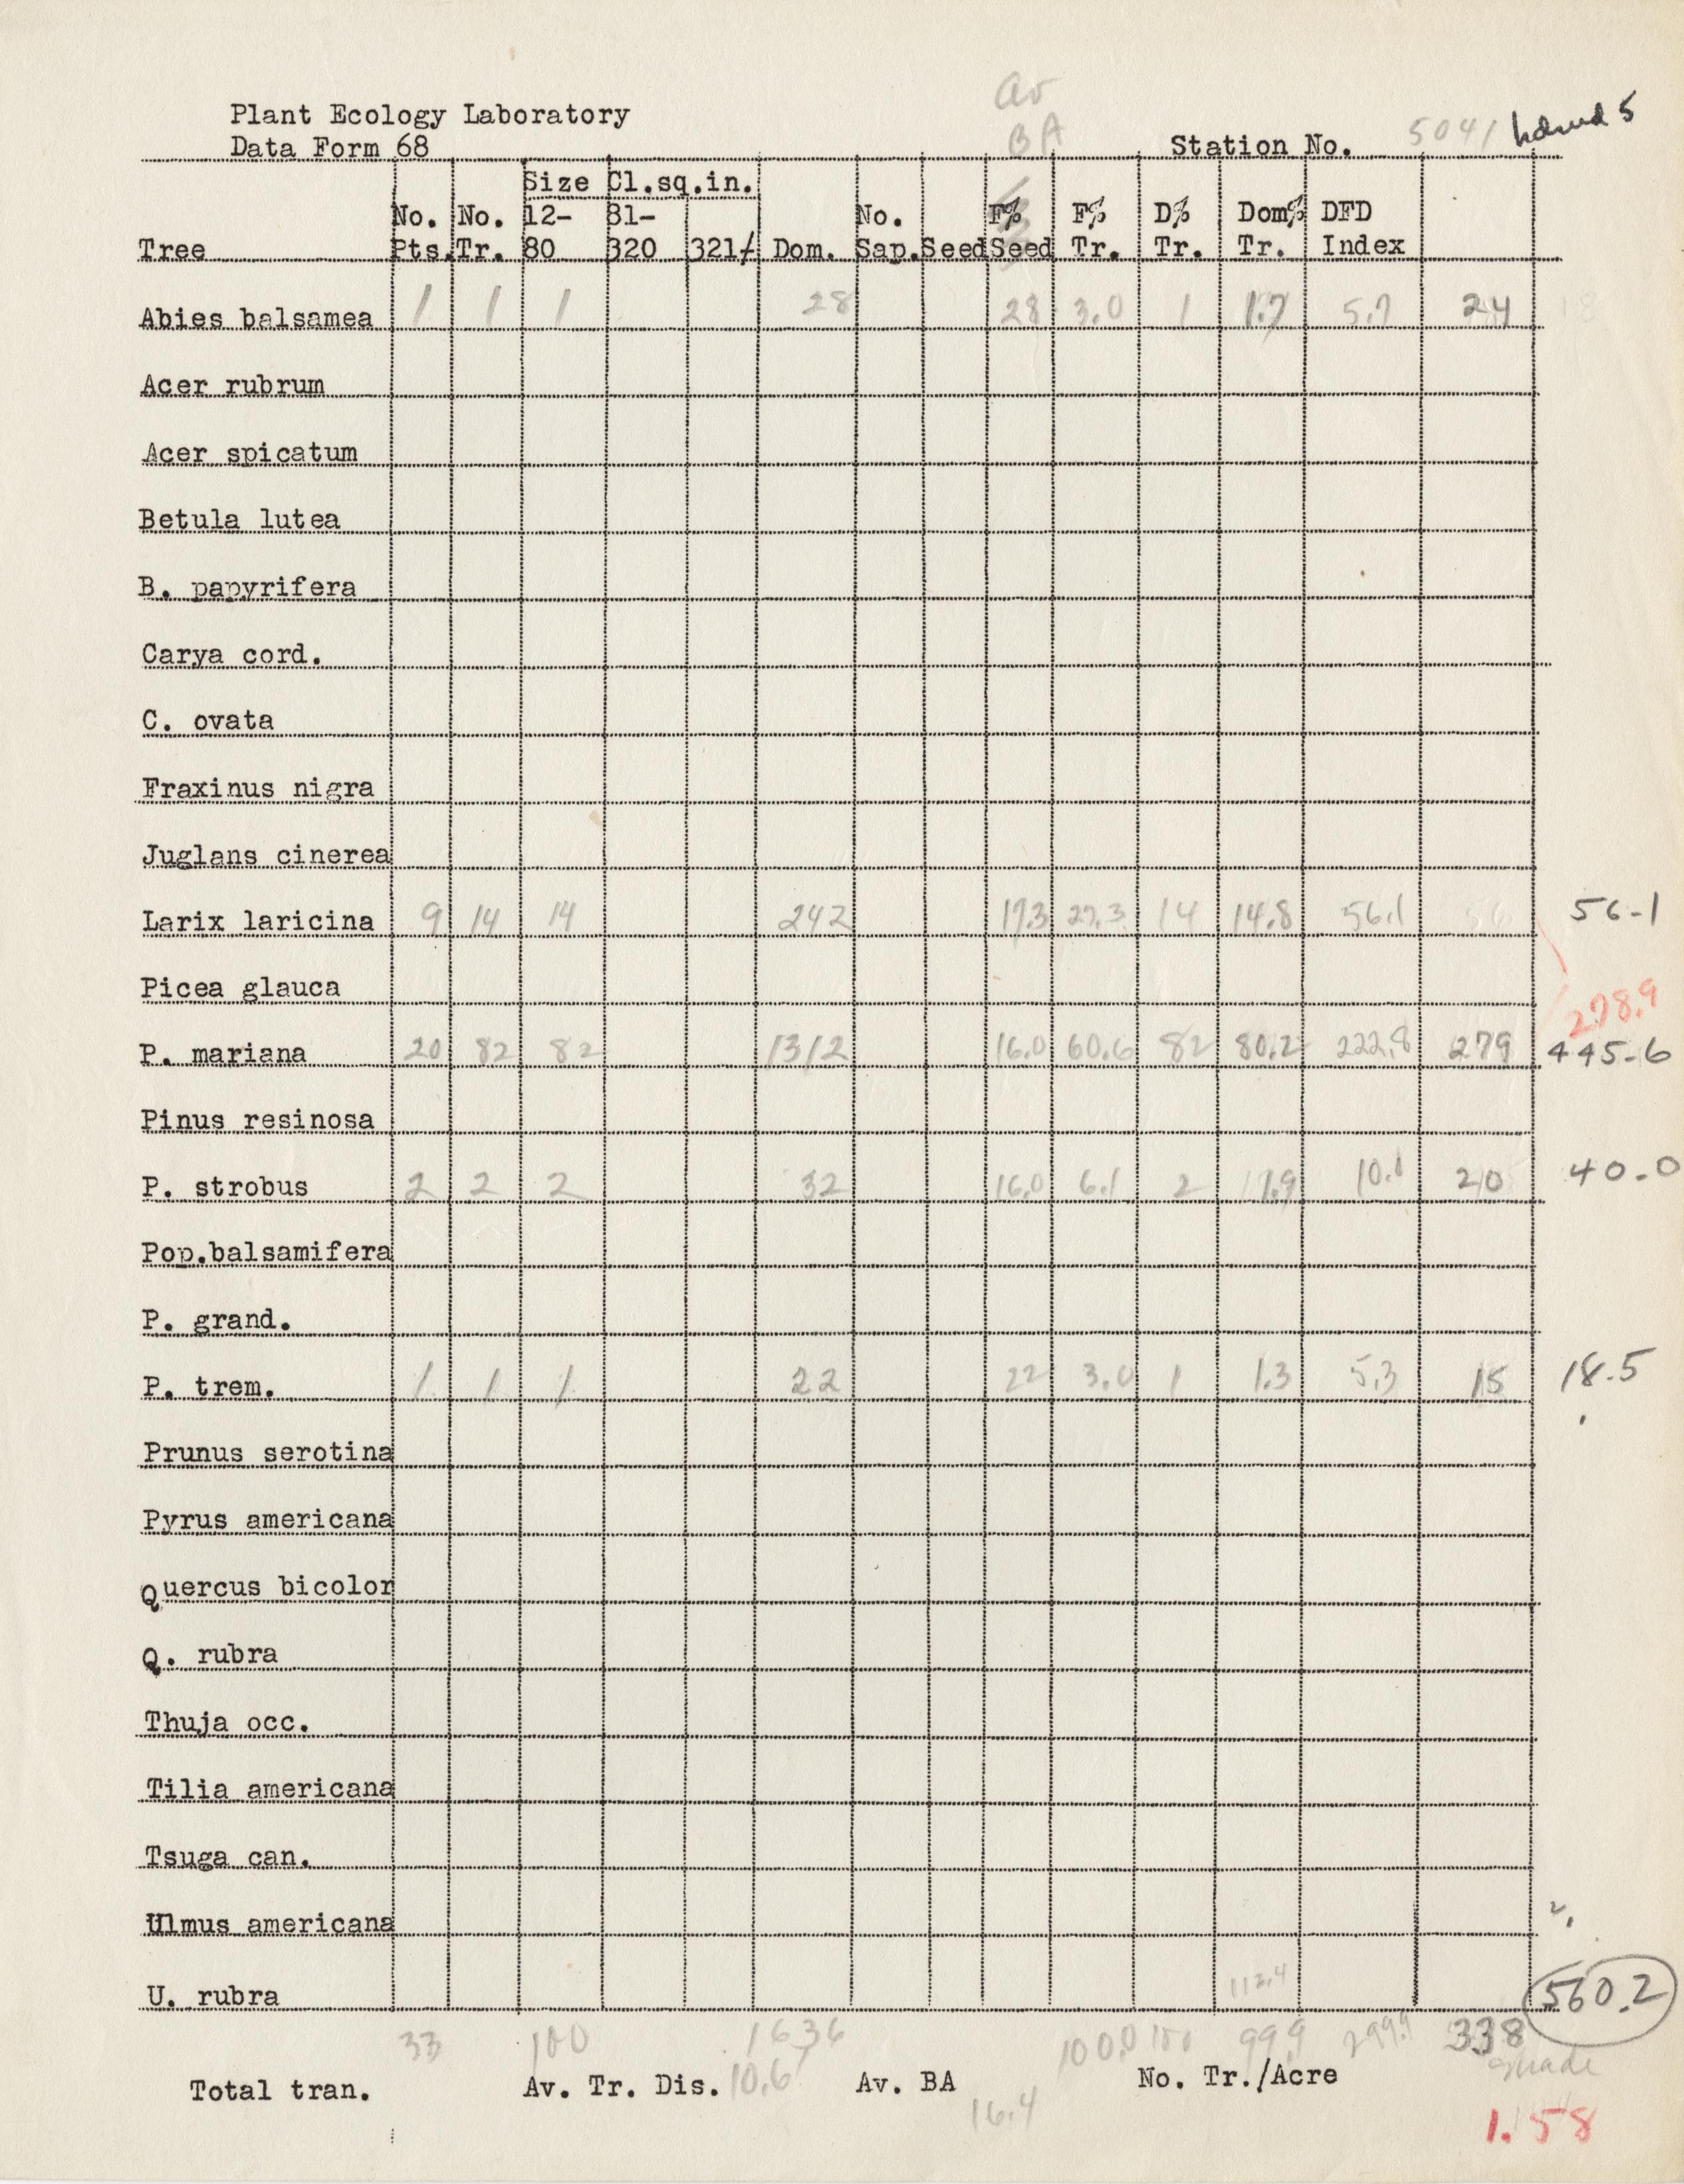 av
Plant Ecology Laboratory
BA
Data Form 68 Station No. 5041
Size Cl.sq.in.
No. No. 12- 81- No. F% F% D% Dom% DFD
Tree Pts. Tr. 80 320 321+ Dom. Sap. Seed Seed Tr. Tr. Tr. Index
Abies balsamea 1 1 1 28 28 3.0 1 1.7 5.7 24 18
Acer rubrum
Acer spicatum
Betula lutea
B. papyrifera
Carya cord.
C. ovata
Fraxinus nigra
Juglans cinerea
Larix laricina 9 14 14 242 17.3 27.3 14 14.8 56.1 56 56-1
Picea glauca
278.9
P. mariana 20 82 82 1312 16.0 60.6 82 80.2 222.8 279 445-6
Pinus resinosa
P. strobus 2 2 2 32 16.0 6.1 2 1.9 10.1 20 40-0
Pop.balsamifera
P. grand.
P. trem. 1 1 1 22 22 3.0 1 1.3 5.3 15 18.5
Prunus serotina
Pyrus americana
Quercus bicolor
Q. rubra
Thuja occ.
Tilia americana
Tsuga can.
Ulmus americana
112.4
U. rubra 560.2
33 100 1636 100.0 100 99.9 299.9 338
shade
Total tran. Av. Tr. Dis. 10.6 Av. BA 16.4 No. Tr./Acre
1.58